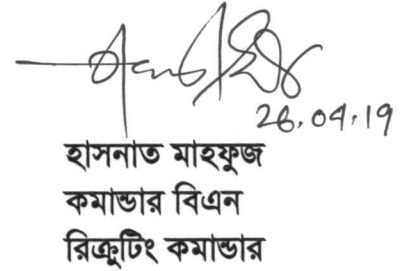 26.04.19
হাসনাত মাহফুজ
কমান্ডার বিএন
রিক্রুটিং কমান্ডার